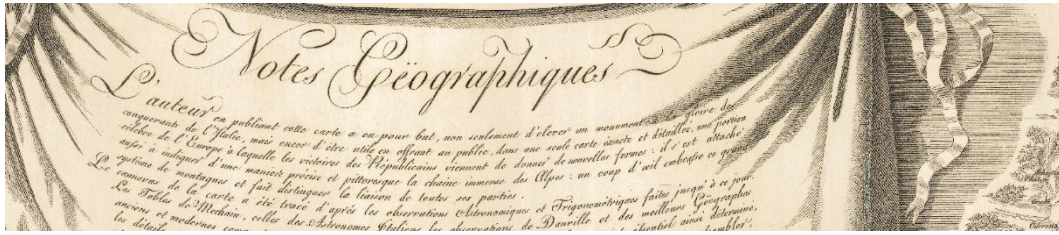 Notes Gëographiques
L'auteur en publiant cette carte a eu pour but, non seulement d'élever un monument à la gloire des
conquerants de l'Italie, mais encor d'être utile en offrant au public, dans une seule carte exacte et détaillée, une portion
célébre de l'Europe à laquelle les victoires des Républicains viennent de donner de nouvelles formes : il s'est attaché
aussi à indiquer d'une manière précise et pittoresque la chaine immense des Alpes : un coup d'œil embrasse ce grand
systême de montagnes et fait distinguer la liaison de toutes ses parties.
Le cannevas de la carte a été tracé d'après les observations Astronomiques et Trigonométriques faites jusqu'à ce jour.
Les Tables de Méchain, celles des Astronomes Italiens, les observations de Danville et des meilleurs Géographes
anciens et modernes
essentiel ainsi déterminé,
les détails